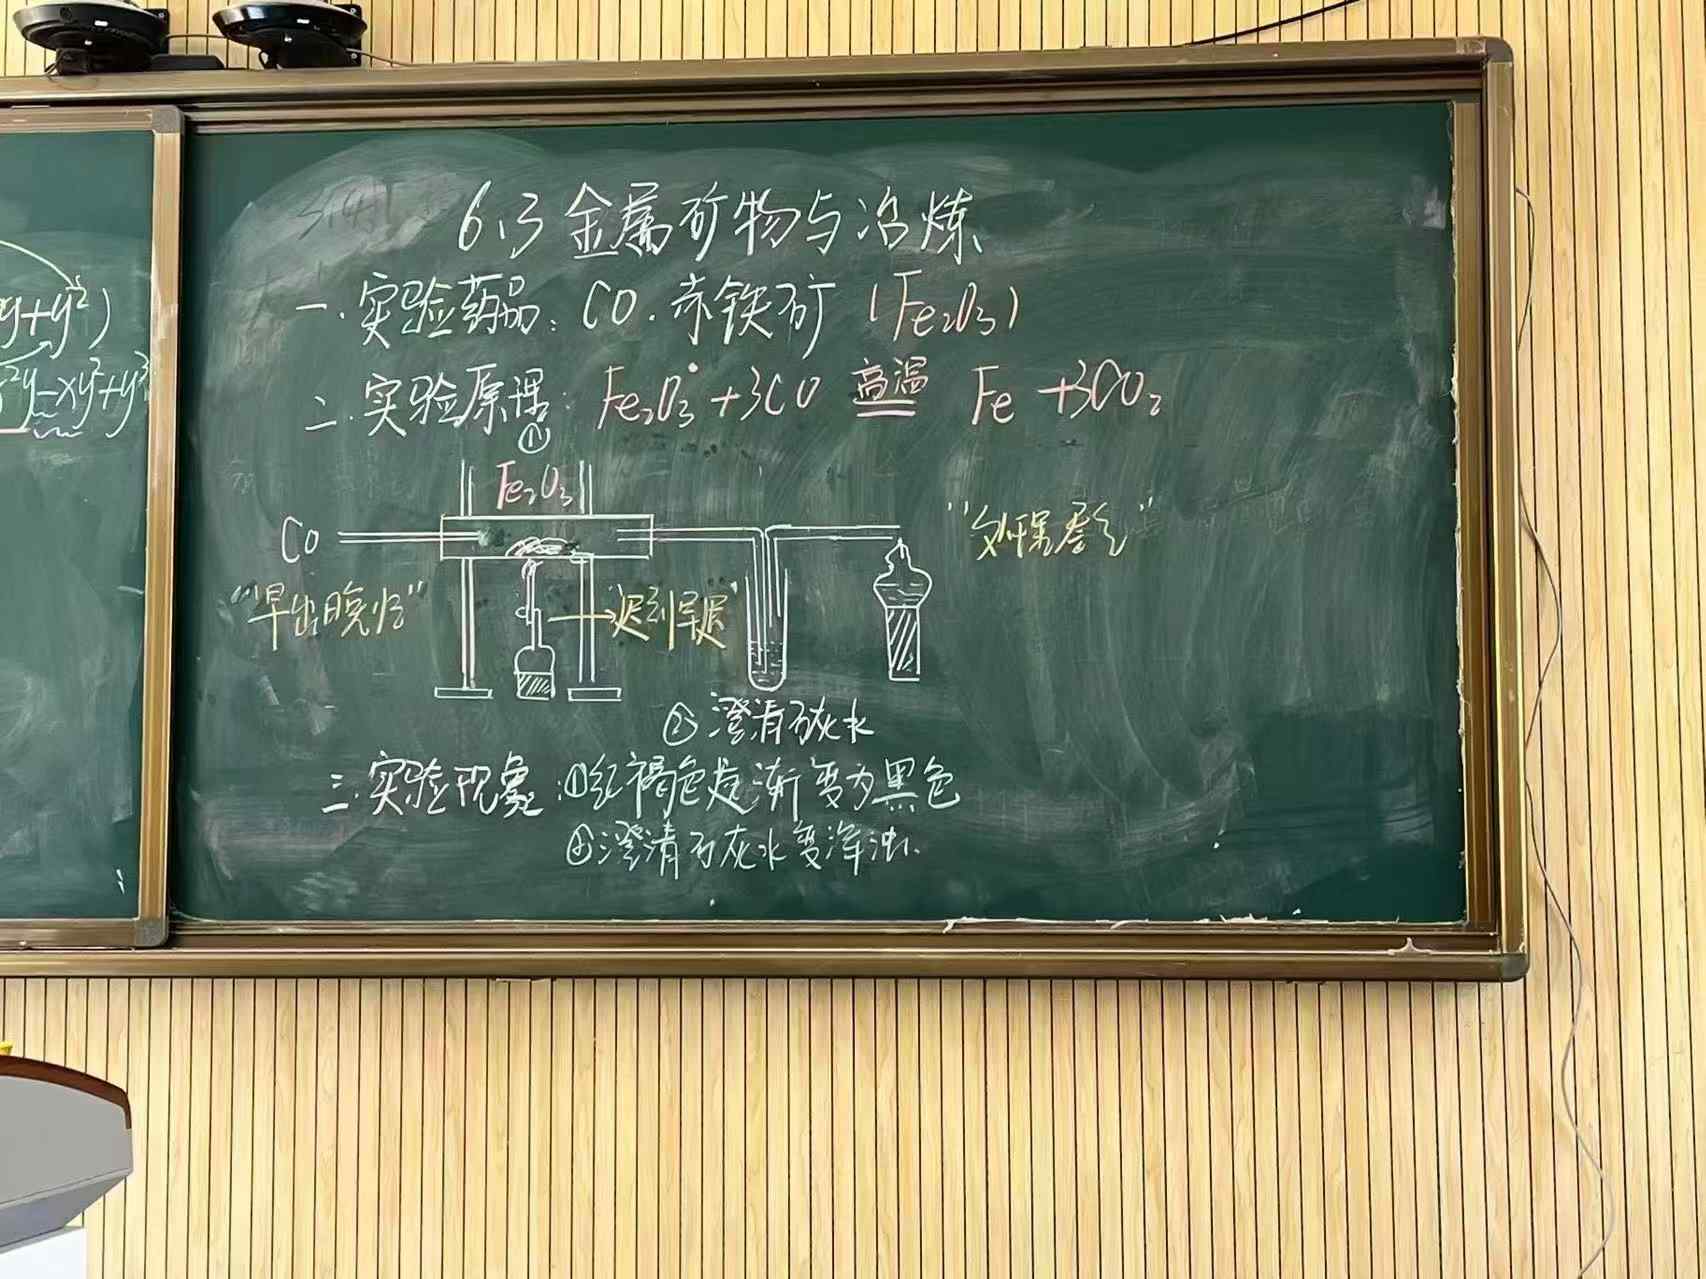 y+y²)
²y-xy²+y³
6.3 金属矿物与冶炼
一.实验药品: CO.赤铁矿 (Fe₂O₃)
二.实验原理: Fe₂O₃+3CO 高温 Fe +3CO₂
①
Fe₂O₃
CO
"早出晚归"
"迟到早退"
②澄清石灰水
三.实验现象:①红褐色逐渐变为黑色
②澄清石灰水变浑浊.